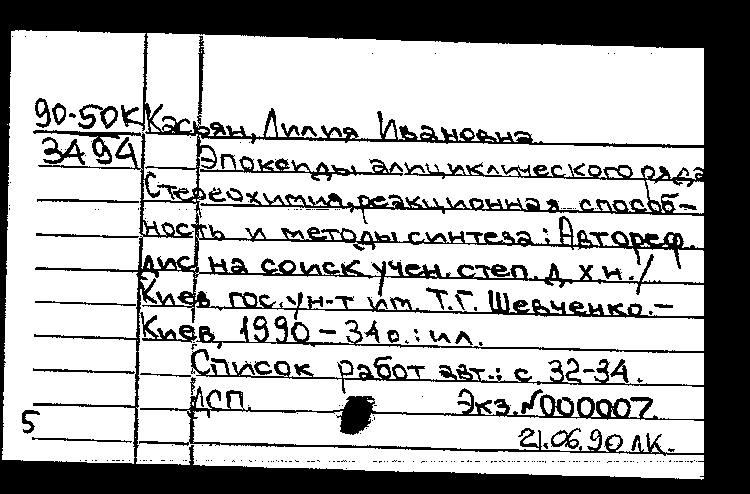 90-50К Касьян, Лилия Ивановна.
3494 Эпоксиды алициклического ряда
Стереохимия, реакционная способ-
ность и методы синтеза : Автореф.
дис. на соиск учен. степ. д. х.н. /
Киев. гос. ун-т им. Т.Г. Шевченко.-
Киев, 1990 - 34 с. : ил.
Список работ авт.: с. 32-34.
ДСП. Экз.N000007.
5
21.06.90 ЛК.